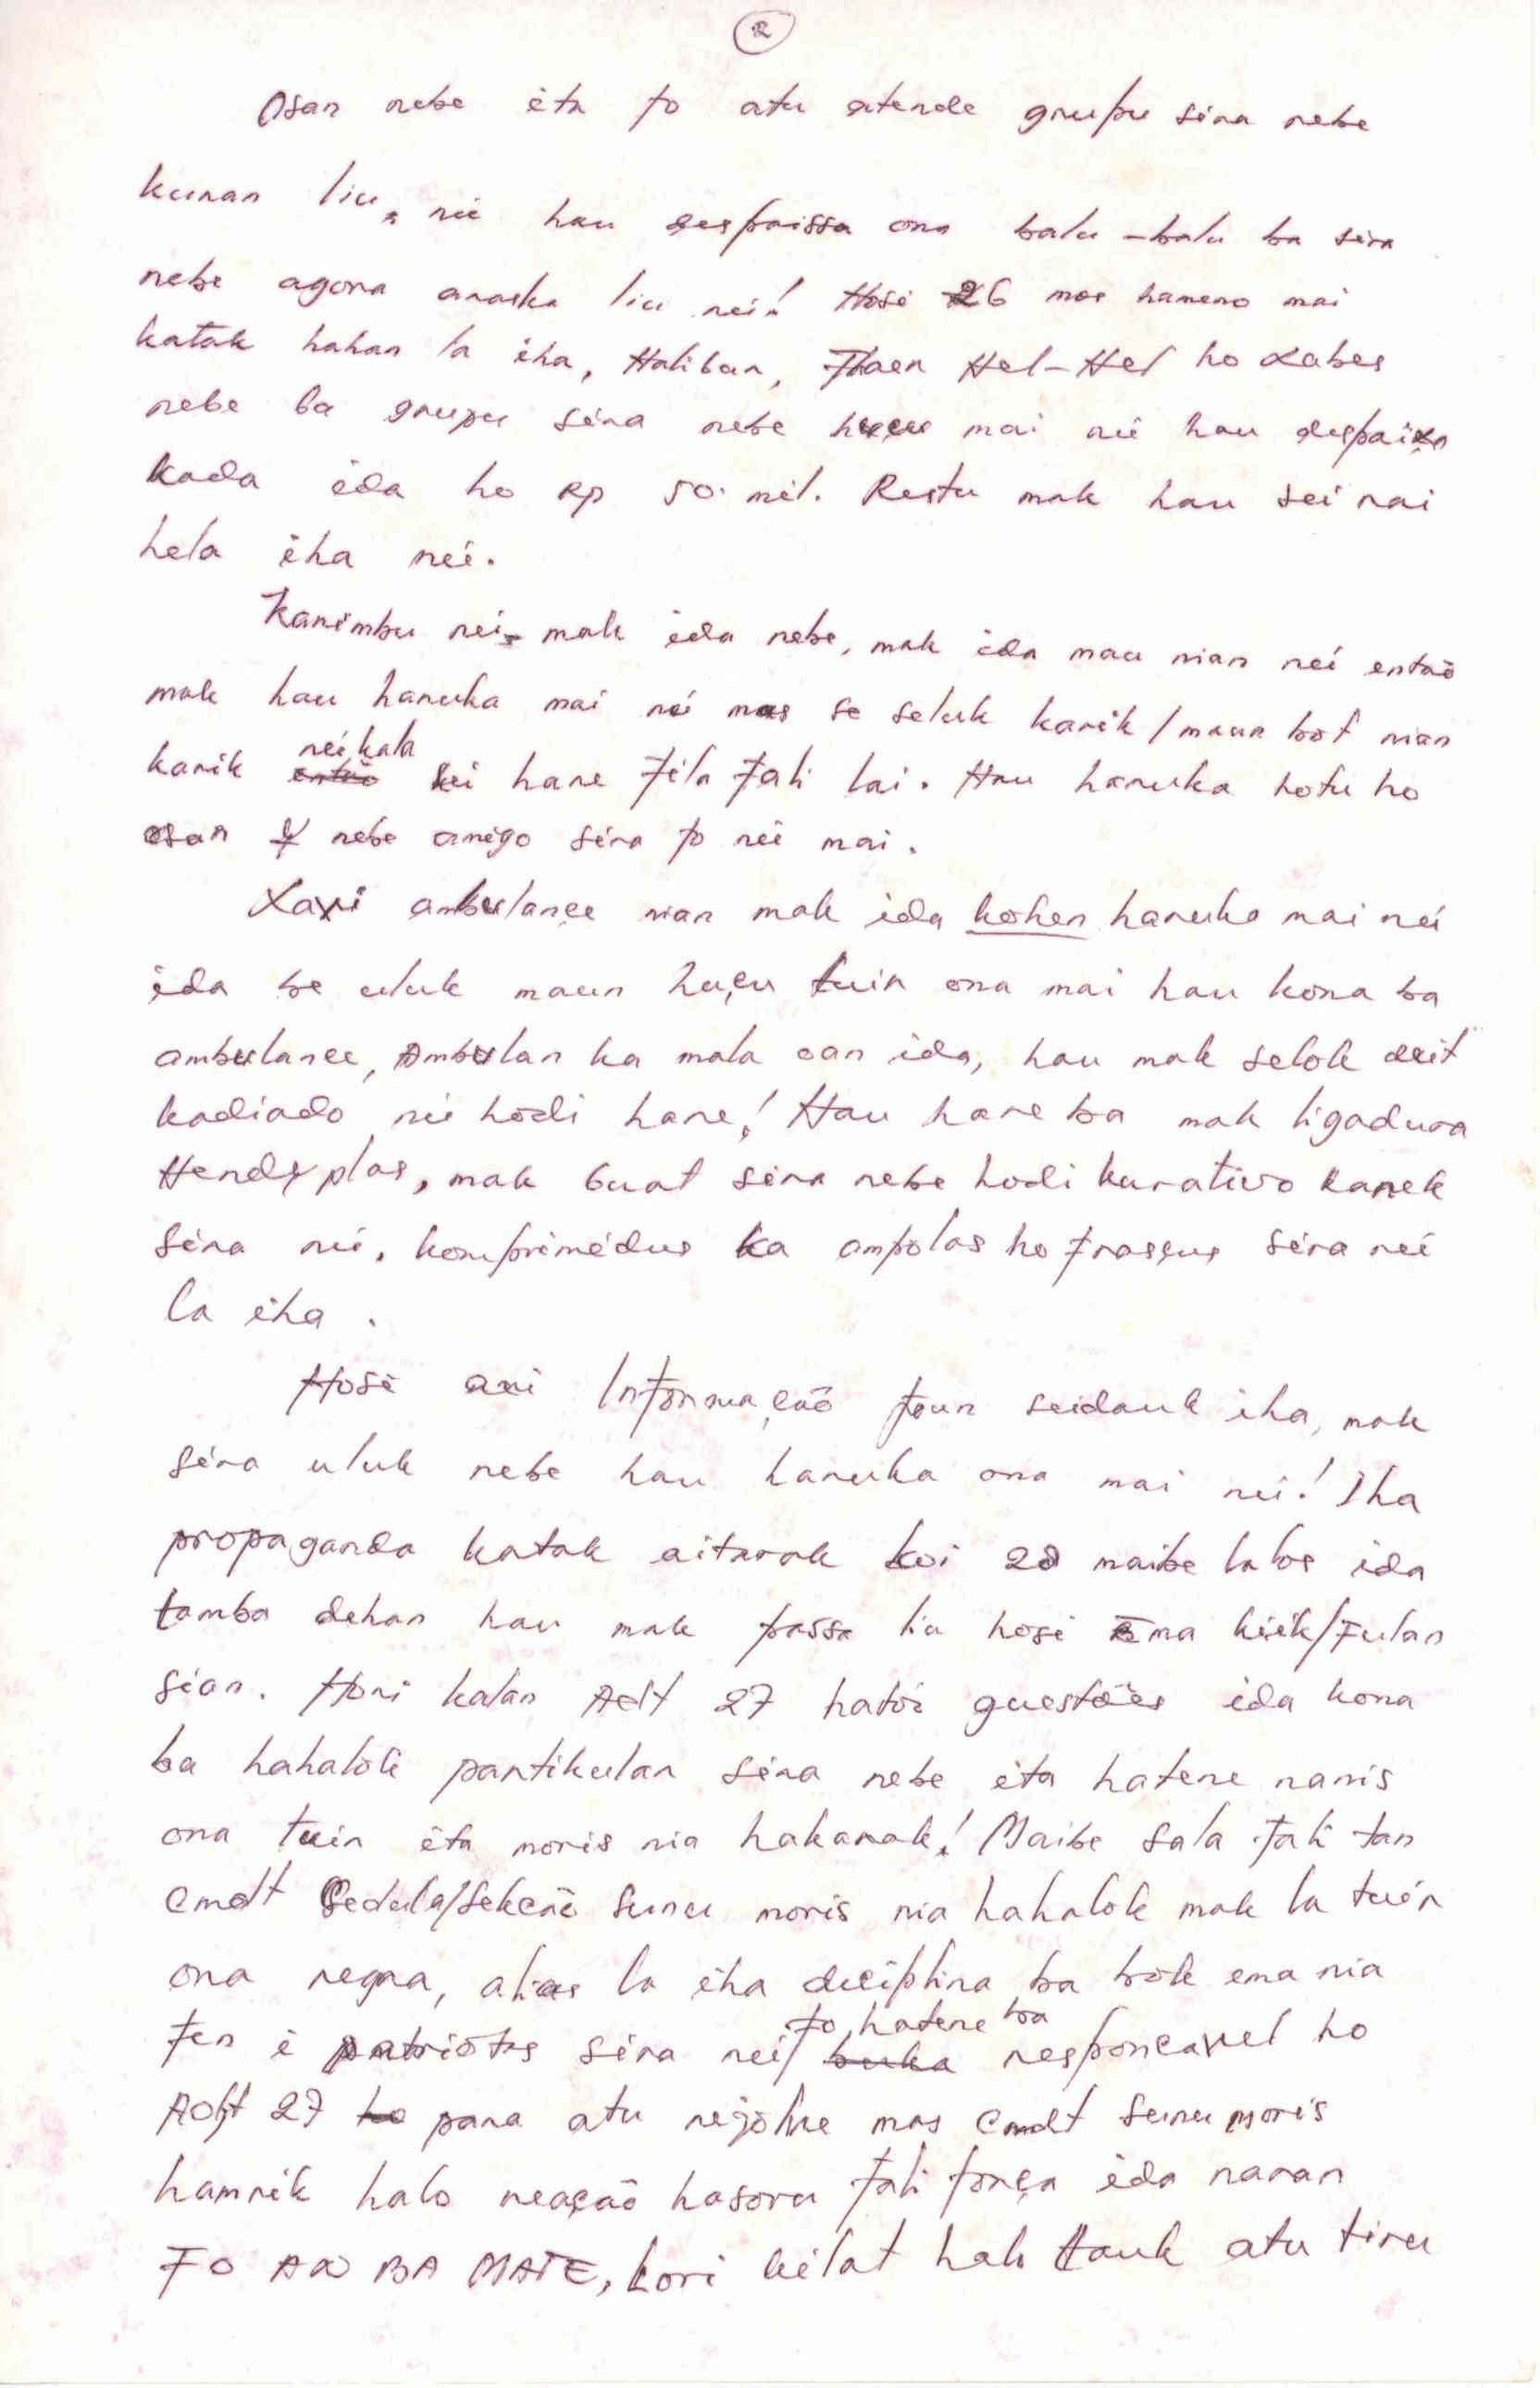 2
Osan nebe ita fo atu atende grupu sira nebe
kuran liu, nii hau despaissa ona balu-balu ba sira
nebe agora araska liu nei! Hosi 26 mos hameno mai
katak hahan la iha, Haliban, Fhaen Hel-Hel ho Labes
nebe ba grupu sira nebe huçu mai nii hau despaixa
kada ida ho Rp 50. mil. Restu mak hau sei rai
hela iha nei.
Karimbu nei mak ida nebe, mak ida mau nian nei entaõ
mak hau haruka mai nei mas se seluk karik / maun bot nian
karik nei kala sei hare fila fali lai. Hau haruka hotu ho
osan nebe amigo sira fo nei mai.
Laxi ambulance nian mak ida kohen haruka mai nei
ida be uluk maun huçu tuir ona mai hau kona ba
ambulance, Ambulan ka mala oan ida, hau mak selok deit
kadiado nii hodi hare! Hau hare ba mak ligadura
Hendyplas, mak buat sira nebe hodi kurativo kanek
sira nei, komprimédus ka ampolas ho frasçus sira nei
la iha.
Hosi ami Informaçaõ foun seidauk iha, mak
sira uluk nebe hau haruka ona mai nei! Iha
propaganda katak aitarak koi 20 maibe labos ida
tamba dehan hau mak passa lia hosi Ema kiik/Fulan
sian. Hori kalan Adt 27 hatoi questões ida kona
ba hahalok partikular sira nebe ita hatene nanis
ona tuir ita moris nia hakarak! Maibe sala fali tan
Cmdt Sedula/Sekcaõ Sunu moris nia hahalok mak la tuir
ona regra, alias la iha deciplina ba bok ema nia
fen i patriotas sira nei fo hatene ba responcavel ho
Adjt 27 para atu rejolve mas Cmdt Sunu moris
hamrik halo reaçaõ hasoru fali força ida naran
FO AN BA MATE, lori kilat halo tauk atu tiru